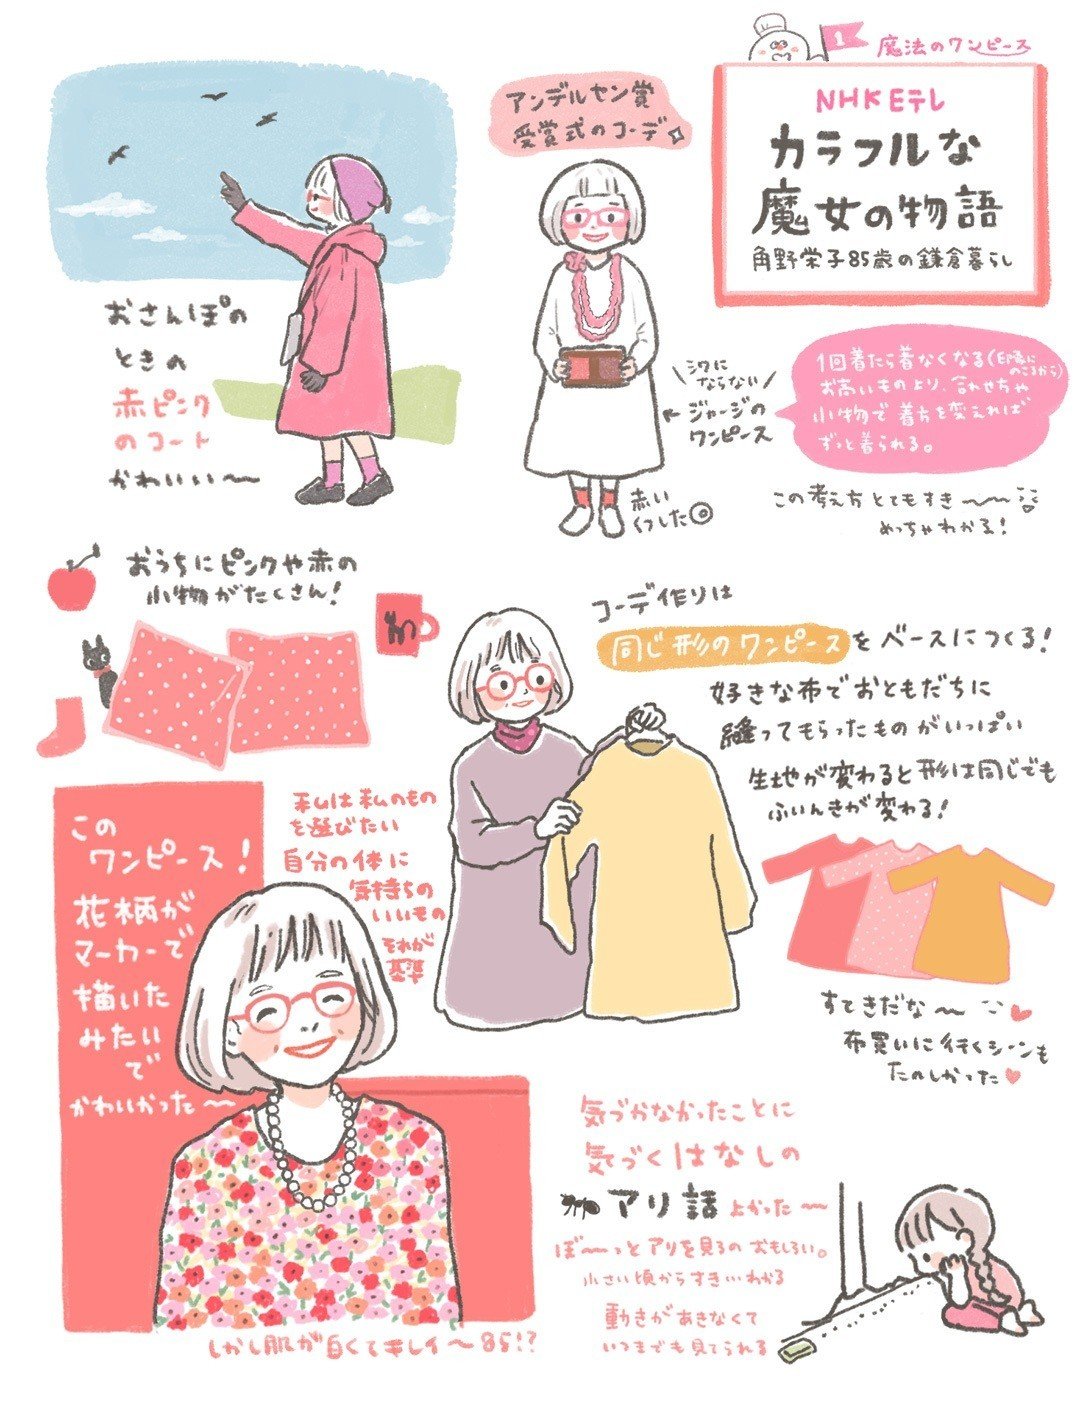 1
魔法のワンピース
NHK Eテレ
カラフルな
魔女の物語
角野栄子85歳の鎌倉暮らし
アンデルセン賞
受賞式のコーデ
おさんぽの
ときの
赤ピンク
のコート
かわいい〜
シワに
ならない
ジャージの
ワンピース
赤い
くつした◎
1回着たら着なくなる(印象に
のこるから)
お高いものより、合わせちゃ
小物で着方を変えれば
ずっと着られる。
この考え方とてもすき〜〜
めっちゃわかる!
おうちにピンクや赤の
小物がたくさん!
コーデ作りは
同じ形のワンピースをベースにつくる!
好きな布でおともだちに
縫ってもらったものがいっぱい
生地が変わると形は同じでも
ふいんきが変わる!
すてきだな〜
布買いに行くシーンも
たのしかった
私は私のもの
を選びたい
自分の体に
気持ちの
いいもの
それが
基準
この
ワンピース!
花柄が
マーカーで
描いた
みたい
で
かわいかった〜
しかし肌が白くてキレイ〜85!?
気づかなかったことに
気づくはなしの
アリ話 よかった〜
ぼ〜っとアリを見るのおもしろい。
小さい頃からすきいわかる
動きがあきなくて
いつまでも見てられる